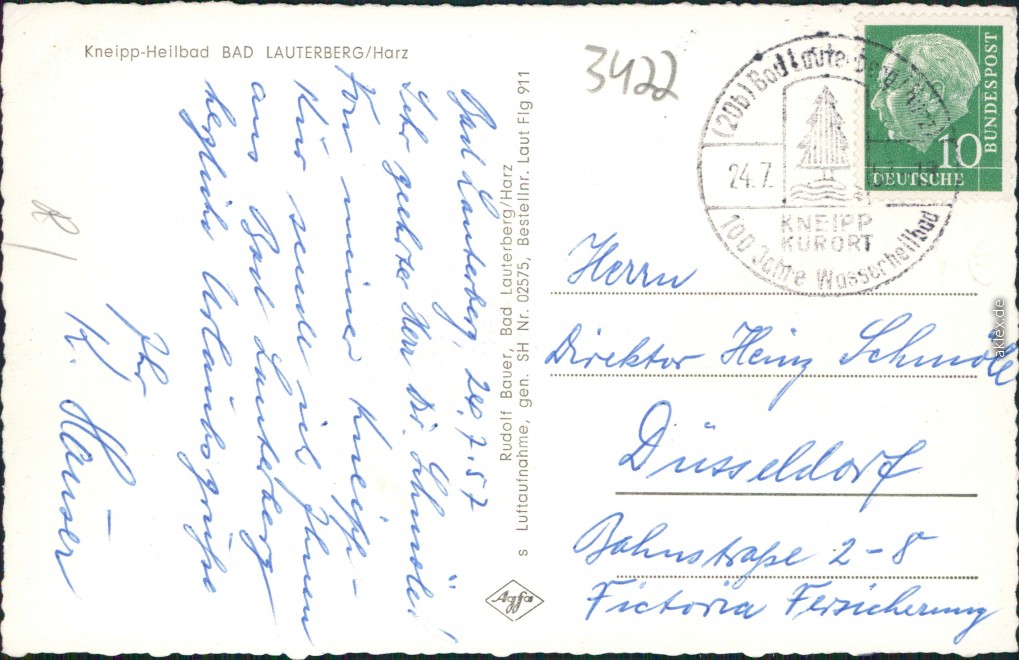 Kneipp-Heilbad BAD LAUTERBERG/Harz
3422
(20b) Bad Lauterberg (Harz)
24.7.
KNEIPP
KURORT
100 Jahre Wasserheilbad
10
DEUTSCHE
BUNDESPOST
Bad Lauterberg, 24.7.57
Sehr geehrter Herr Dr. Schmöle!
Von meiner Kneipp-
Kur sende ich Ihnen
aus Bad Lauterberg
herzliche Urlaubsgrüße
Ihr
K. Häuser
Rudolf Bauer, Bad Lauterberg/Harz
s Luftaufnahme, gen. SH Nr. 02575, Bestellnr. Laut Flg 911
Agfa
Herrn
Direktor Heinz Schmöle
Düsseldorf
Bahnstraße 2-8
Victoria Versicherung
aklex.de